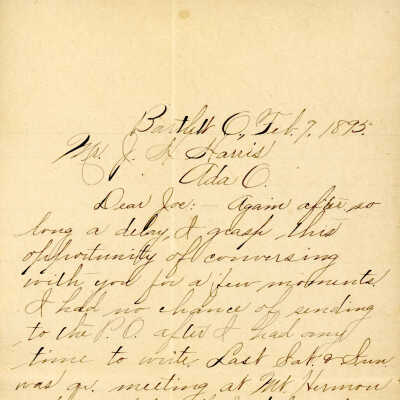 Bartlett O., Feb. 7, 1895.
Mr. J. H. Harris
Ada O.
Dear Joe:— Again after so
long a delay, I grasp this
opportunity of conversing
with you for a few moments.
I had no chance of sending
to the P. O. after I had any
time to write. Last Sat. & Sun.
was qr. meeting at Mt Hermon